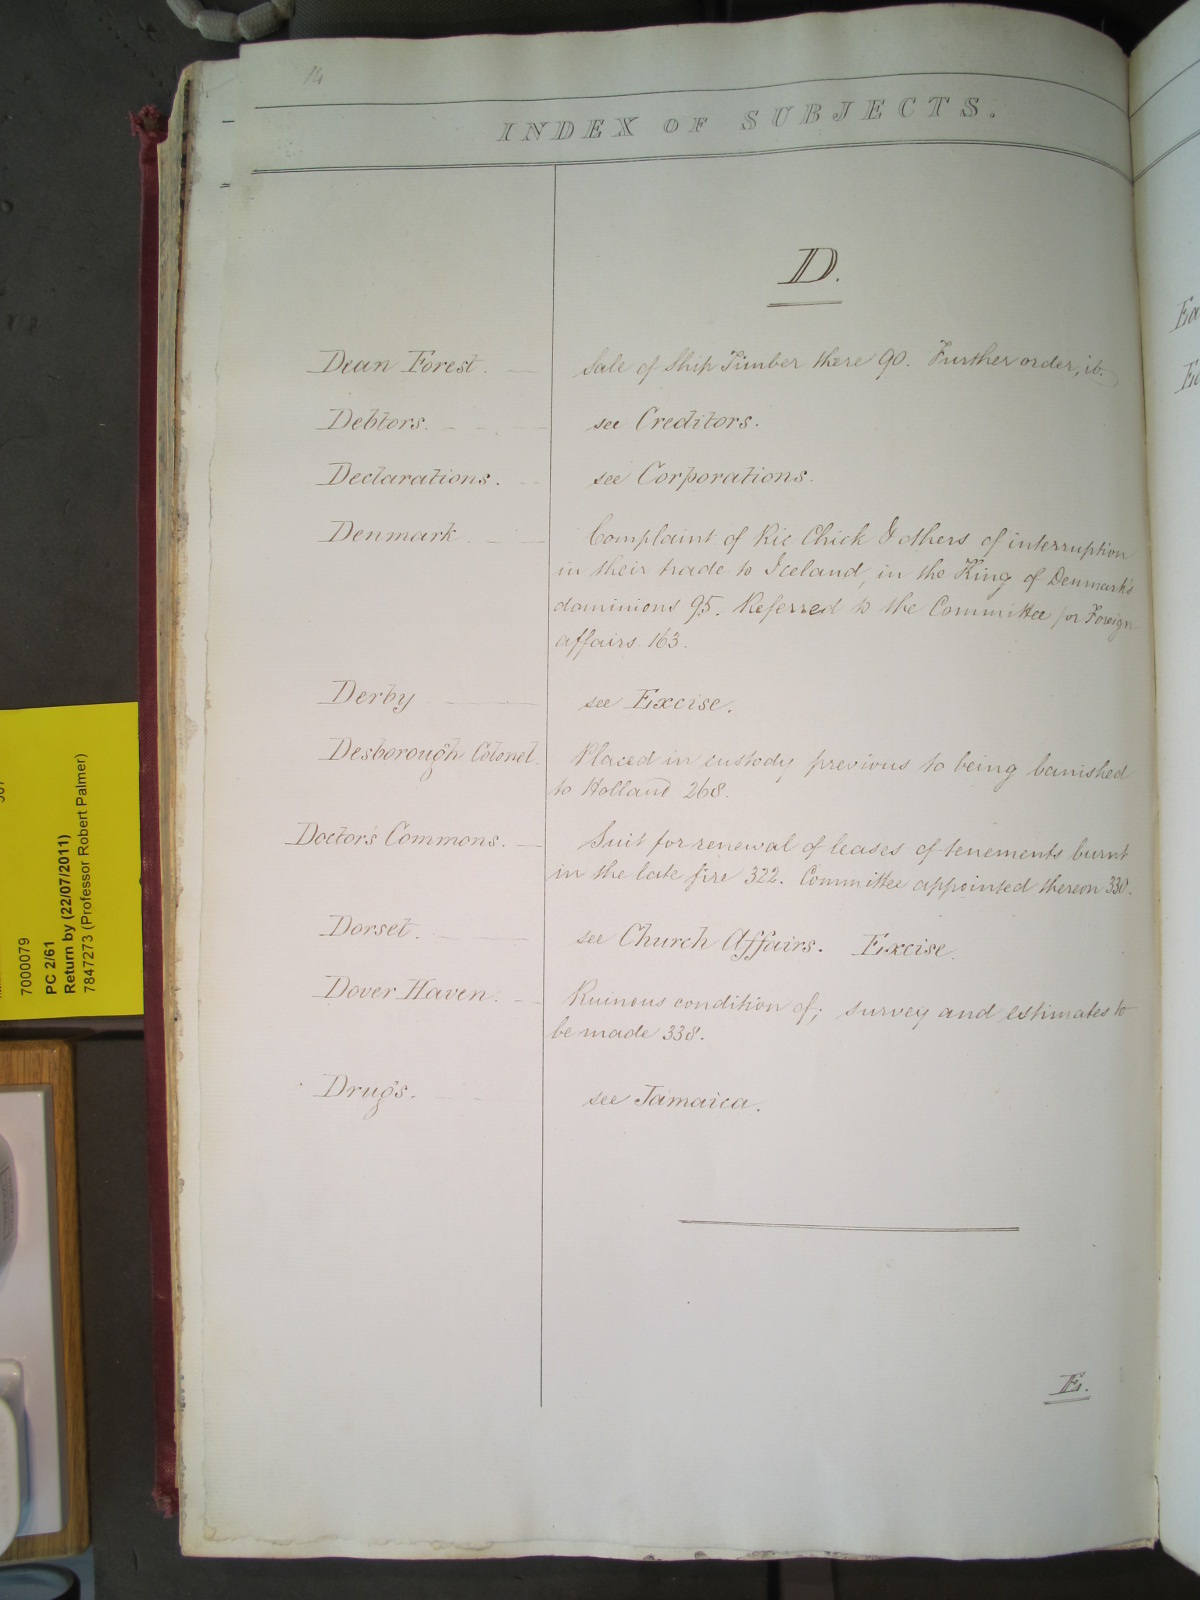 14
INDEX OF SUBJECTS.
D.
Dean Forest. Sale of Ship Timber there 90. Further order, ib.
Debtors. see Creditors.
Declarations. see Corporations.
Denmark. Complaint of Ric Chick & others of interruption
in their trade to Iceland, in the King of Denmark's
dominions 95. Referred to the Committee for Foreign
affairs 163.
Derby see Excise.
Desborough Colonel. Placed in custody previous to being banished
to Holland 268.
Doctor's Commons. Suit for renewal of leases of tenements burnt
in the late fire 322. Committee appointed thereon 330.
Dorset. see Church Affairs. Excise.
Dover Haven. Ruinous condition of; survey and estimates to
be made 338.
Drugs. see Jamaica.
E.
7000079
PC 2/61
Return by (22/07/2011)
7847273 (Professor Robert Palmer)